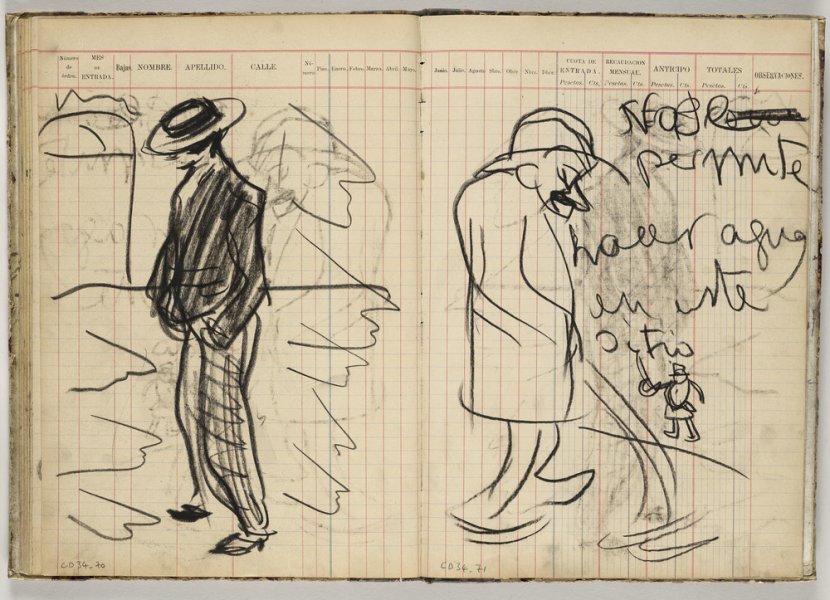 Número de órden.
MES DE ENTRADA.
Bajas.
NOMBRE.
APELLIDO.
CALLE.
Número
Piso.
Enero.
Febro.
Marzo.
Abril.
Mayo.
Junio.
Julio.
Agosto
Sbre.
Obre
Nbre.
Dbre.
CUOTA DE ENTRADA.
Pesetas. Cts.
RECAUDACION MENSUAL.
Pesetas. Cts.
ANTICIPO
Pesetas. Cts.
TOTALES
Pesetas. Cts
OBSERVACIONES.
permite
hacer agua
en este
sitio
CD34.70
CD34.71